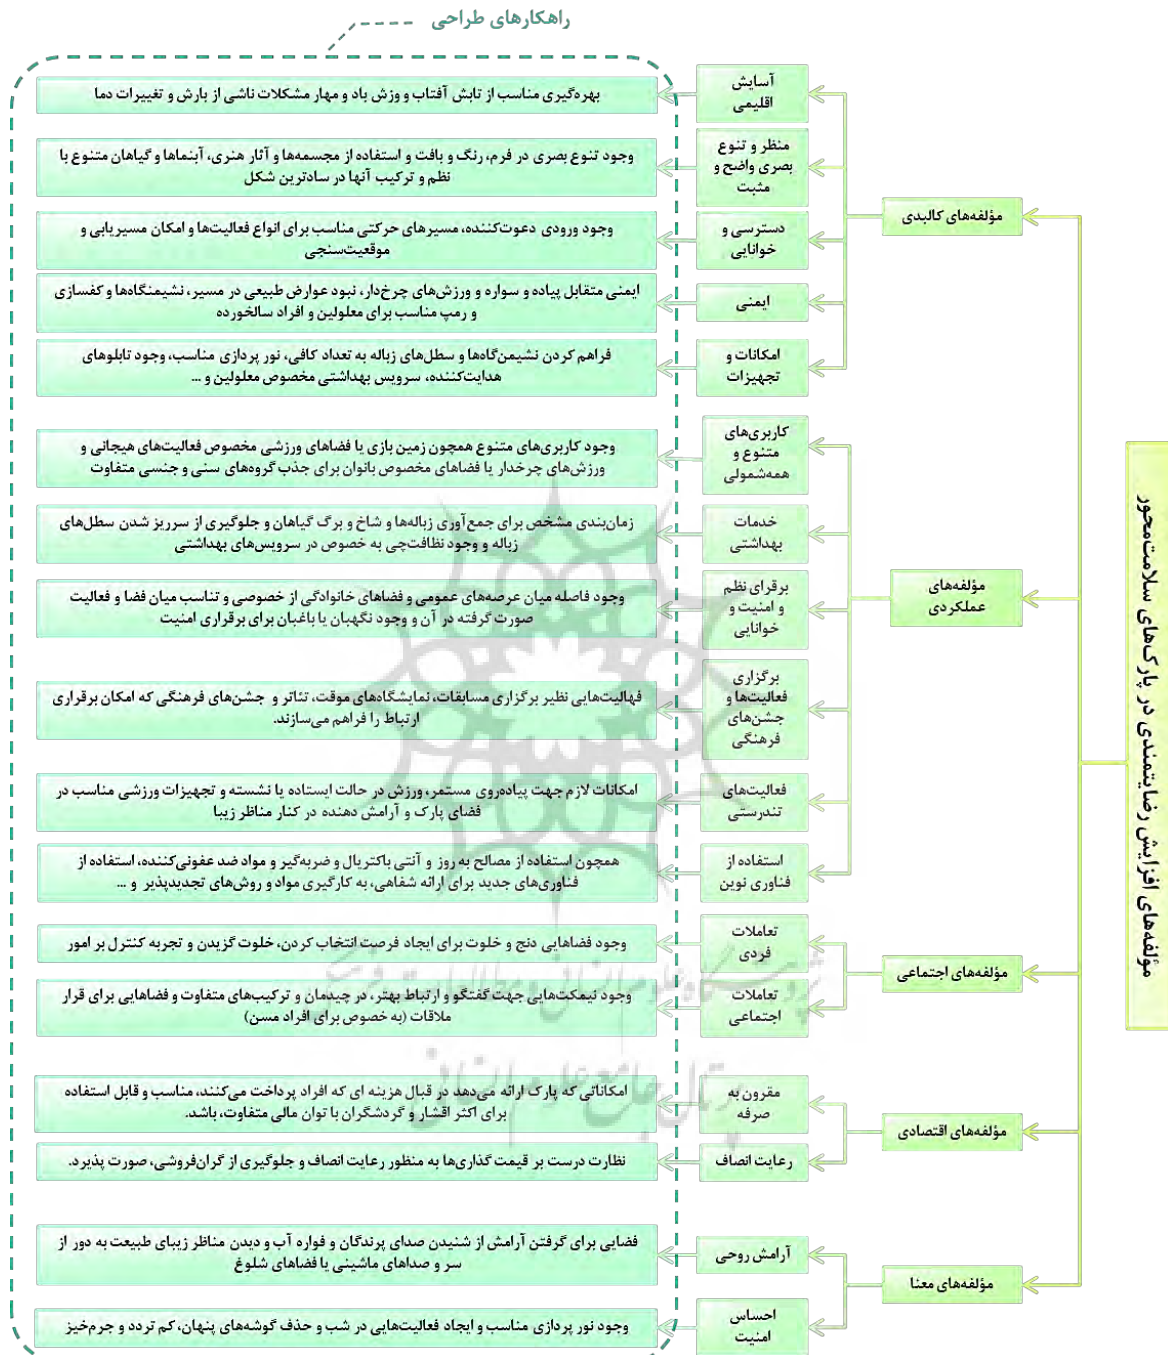 راهکارهای طراحی
مؤلفه‌های افزایش رضایتمندی در پارک‌های سلامت‌محور
مؤلفه‌های کالبدی
آسایش
اقلیمی
بهره‌گیری مناسب از تابش آفتاب و وزش باد و مهار مشکلات ناشی از بارش و تغییرات دما
منظر و تنوع
بصری واضح و
مثبت
وجود تنوع بصری در فرم، رنگ و بافت و استفاده از مجسمه‌ها و آثار هنری، آبنماها و گیاهان متنوع با
نظم و ترکیب آنها در سادترین شکل
دسترسی و
خوانایی
وجود ورودی دعوت‌کننده، مسیرهای حرکتی مناسب برای انواع فعالیت‌ها و امکان مسیریابی و
موقعیت‌سنجی
ایمنی
ایمنی متقابل پیاده و سواره و ورزش‌های چرخ‌دار، نبود عوارض طبیعی در مسیر، نشیمنگاه‌ها و کفسازی
و رمپ مناسب برای معلولین و افراد سالخورده
امکانات و
تجهیزات
فراهم کردن نشیمن‌گاه‌ها و سطل‌های زباله به تعداد کافی، نور پردازی مناسب، وجود تابلوهای
هدایت‌کننده، سرویس بهداشتی مخصوص معلولین و ...
مؤلفه‌های
عملکردی
کاربری‌های
متنوع و
همه‌شمولی
وجود کاربری‌های متنوع همچون زمین بازی یا فضاهای ورزشی مخصوص فعالیت‌های هیجانی و
ورزش‌های چرخدار یا فضاهای مخصوص بانوان برای جذب گروه‌های سنی و جنسی متفاوت
خدمات
بهداشتی
زمان‌بندی مشخص برای جمع‌آوری زباله‌ها و شاخ و برگ گیاهان و جلوگیری از سرریز شدن سطل‌های
زباله و وجود نظافت‌چی به خصوص در سرویس‌های بهداشتی
برقرای نظم
و امنیت و
خوانایی
وجود فاصله میان عرصه‌های عمومی و فضاهای خانوادگی از خصوصی و تناسب میان فضا و فعالیت
صورت گرفته در آن و وجود نگهبان یا باغبان برای برقراری امنیت
برگزاری
فعالیت‌ها و
جشن‌های
فرهنگی
فهالیت‌هایی نظیر برگزاری مسابقات، نمایشگاه‌های موقت، تئاتر و جشن‌های فرهنگی که امکان برقراری
ارتباط را فراهم می‌سازند.
فعالیت‌های
تندرستی
امکانات لازم جهت پیاده‌روی مستمر، ورزش در حالت ایستاده یا نشسته و تجهیزات ورزشی مناسب در
فضای پارک و آرامش دهنده در کنار مناظر زیبا
استفاده از
فناوری نوین
همچون استفاده از مصالح به روز و آنتی باکتریال و ضربه‌گیر و مواد ضد عفونی‌کننده، استفاده از
فناوری‌های جدید برای ارائه شفاهی، به کارگیری مواد و روش‌های تجدیدپذیر و ...
مؤلفه‌های اجتماعی
تعاملات
فردی
وجود فضاهایی دنج و خلوت برای ایجاد فرصت انتخاب کردن، خلوت گزیدن و تجربه کنترل بر امور
تعاملات
اجتماعی
وجود نیمکت‌هایی جهت گفتگو و ارتباط بهتر، در چیدمان و ترکیب‌های متفاوت و فضاهایی برای قرار
ملاقات (به خصوص برای افراد مسن)
پژوهشگاه علوم انسانی و مطالعات فرهنگی
پرتال جامع علوم انسانی
مؤلفه‌های اقتصادی
مقرون به
صرفه
امکاناتی که پارک ارائه می‌دهد در قبال هزینه ای که افراد پرداخت می‌کنند، مناسب و قابل استفاده
برای اکثر اقشار و گردشگران با توان مالی متفاوت، باشد.
رعایت انصاف
نظارت درست بر قیمت گذاری‌ها به منظور رعایت انصاف و جلوگیری از گران‌فروشی، صورت پذیرد.
مؤلفه‌های معنا
آرامش روحی
فضایی برای گرفتن آرامش از شنیدن صدای پرندگان و فواره آب و دیدن مناظر زیبای طبیعت به دور از
سر و صداهای ماشینی یا فضاهای شلوغ
احساس
امنیت
وجود نور پردازی مناسب و ایجاد فعالیت‌هایی در شب و حذف گوشه‌های پنهان، کم تردد و جرم‌خیز